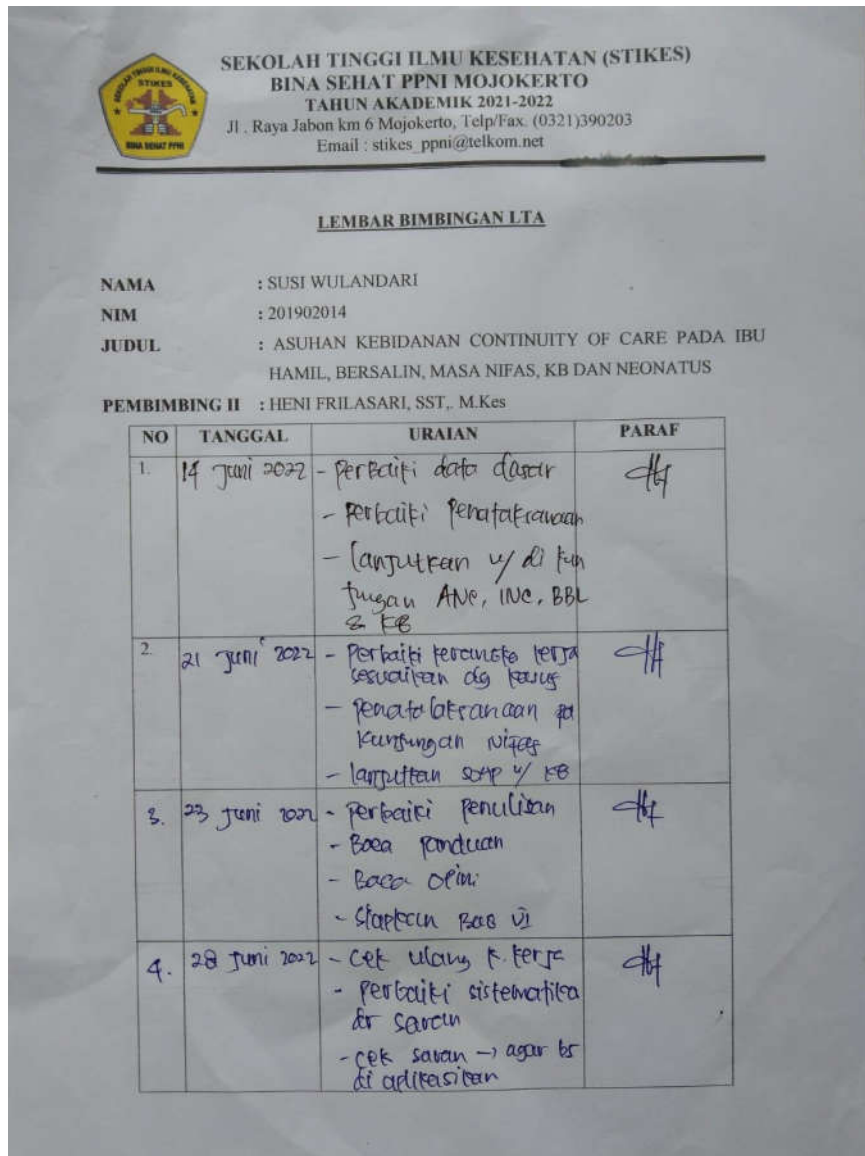 SEKOLAH TINGGI ILMU KESEHATAN
STIKES
BINA SEHAT PPNI
SEKOLAH TINGGI ILMU KESEHATAN (STIKES)
BINA SEHAT PPNI MOJOKERTO
TAHUN AKADEMIK 2021-2022
Jl . Raya Jabon km 6 Mojokerto, Telp/Fax. (0321)390203
Email : stikes_ppni@telkom.net
LEMBAR BIMBINGAN LTA
NAMA : SUSI WULANDARI
NIM : 201902014
JUDUL : ASUHAN KEBIDANAN CONTINUITY OF CARE PADA IBU
HAMIL, BERSALIN, MASA NIFAS, KB DAN NEONATUS
PEMBIMBING II : HENI FRILASARI, SST,. M.Kes
NO TANGGAL URAIAN PARAF
1. 14 Juni 2022 - Perbaiki data dasar
- Perbaiki Penatalaksanaan
- lanjutkan u/ di kun
jungan ANC, INC, BBL
& KB
2. 21 Juni 2022 - Perbaiki kerangka kerja
sesuaikan dg kasus
- penatalaksanaan pd
kunjungan Nifas
- lanjutkan SOAP u/ KB
3. 23 Juni 2022 - Perbaiki penulisan
- Baca panduan
- Baca opini
- Siapkan BAB VI
4. 28 Juni 2022 - Cek ulang k. kerja
- perbaiki sistematika
dr saran
- cek saran → agar bs
di aplikasikan